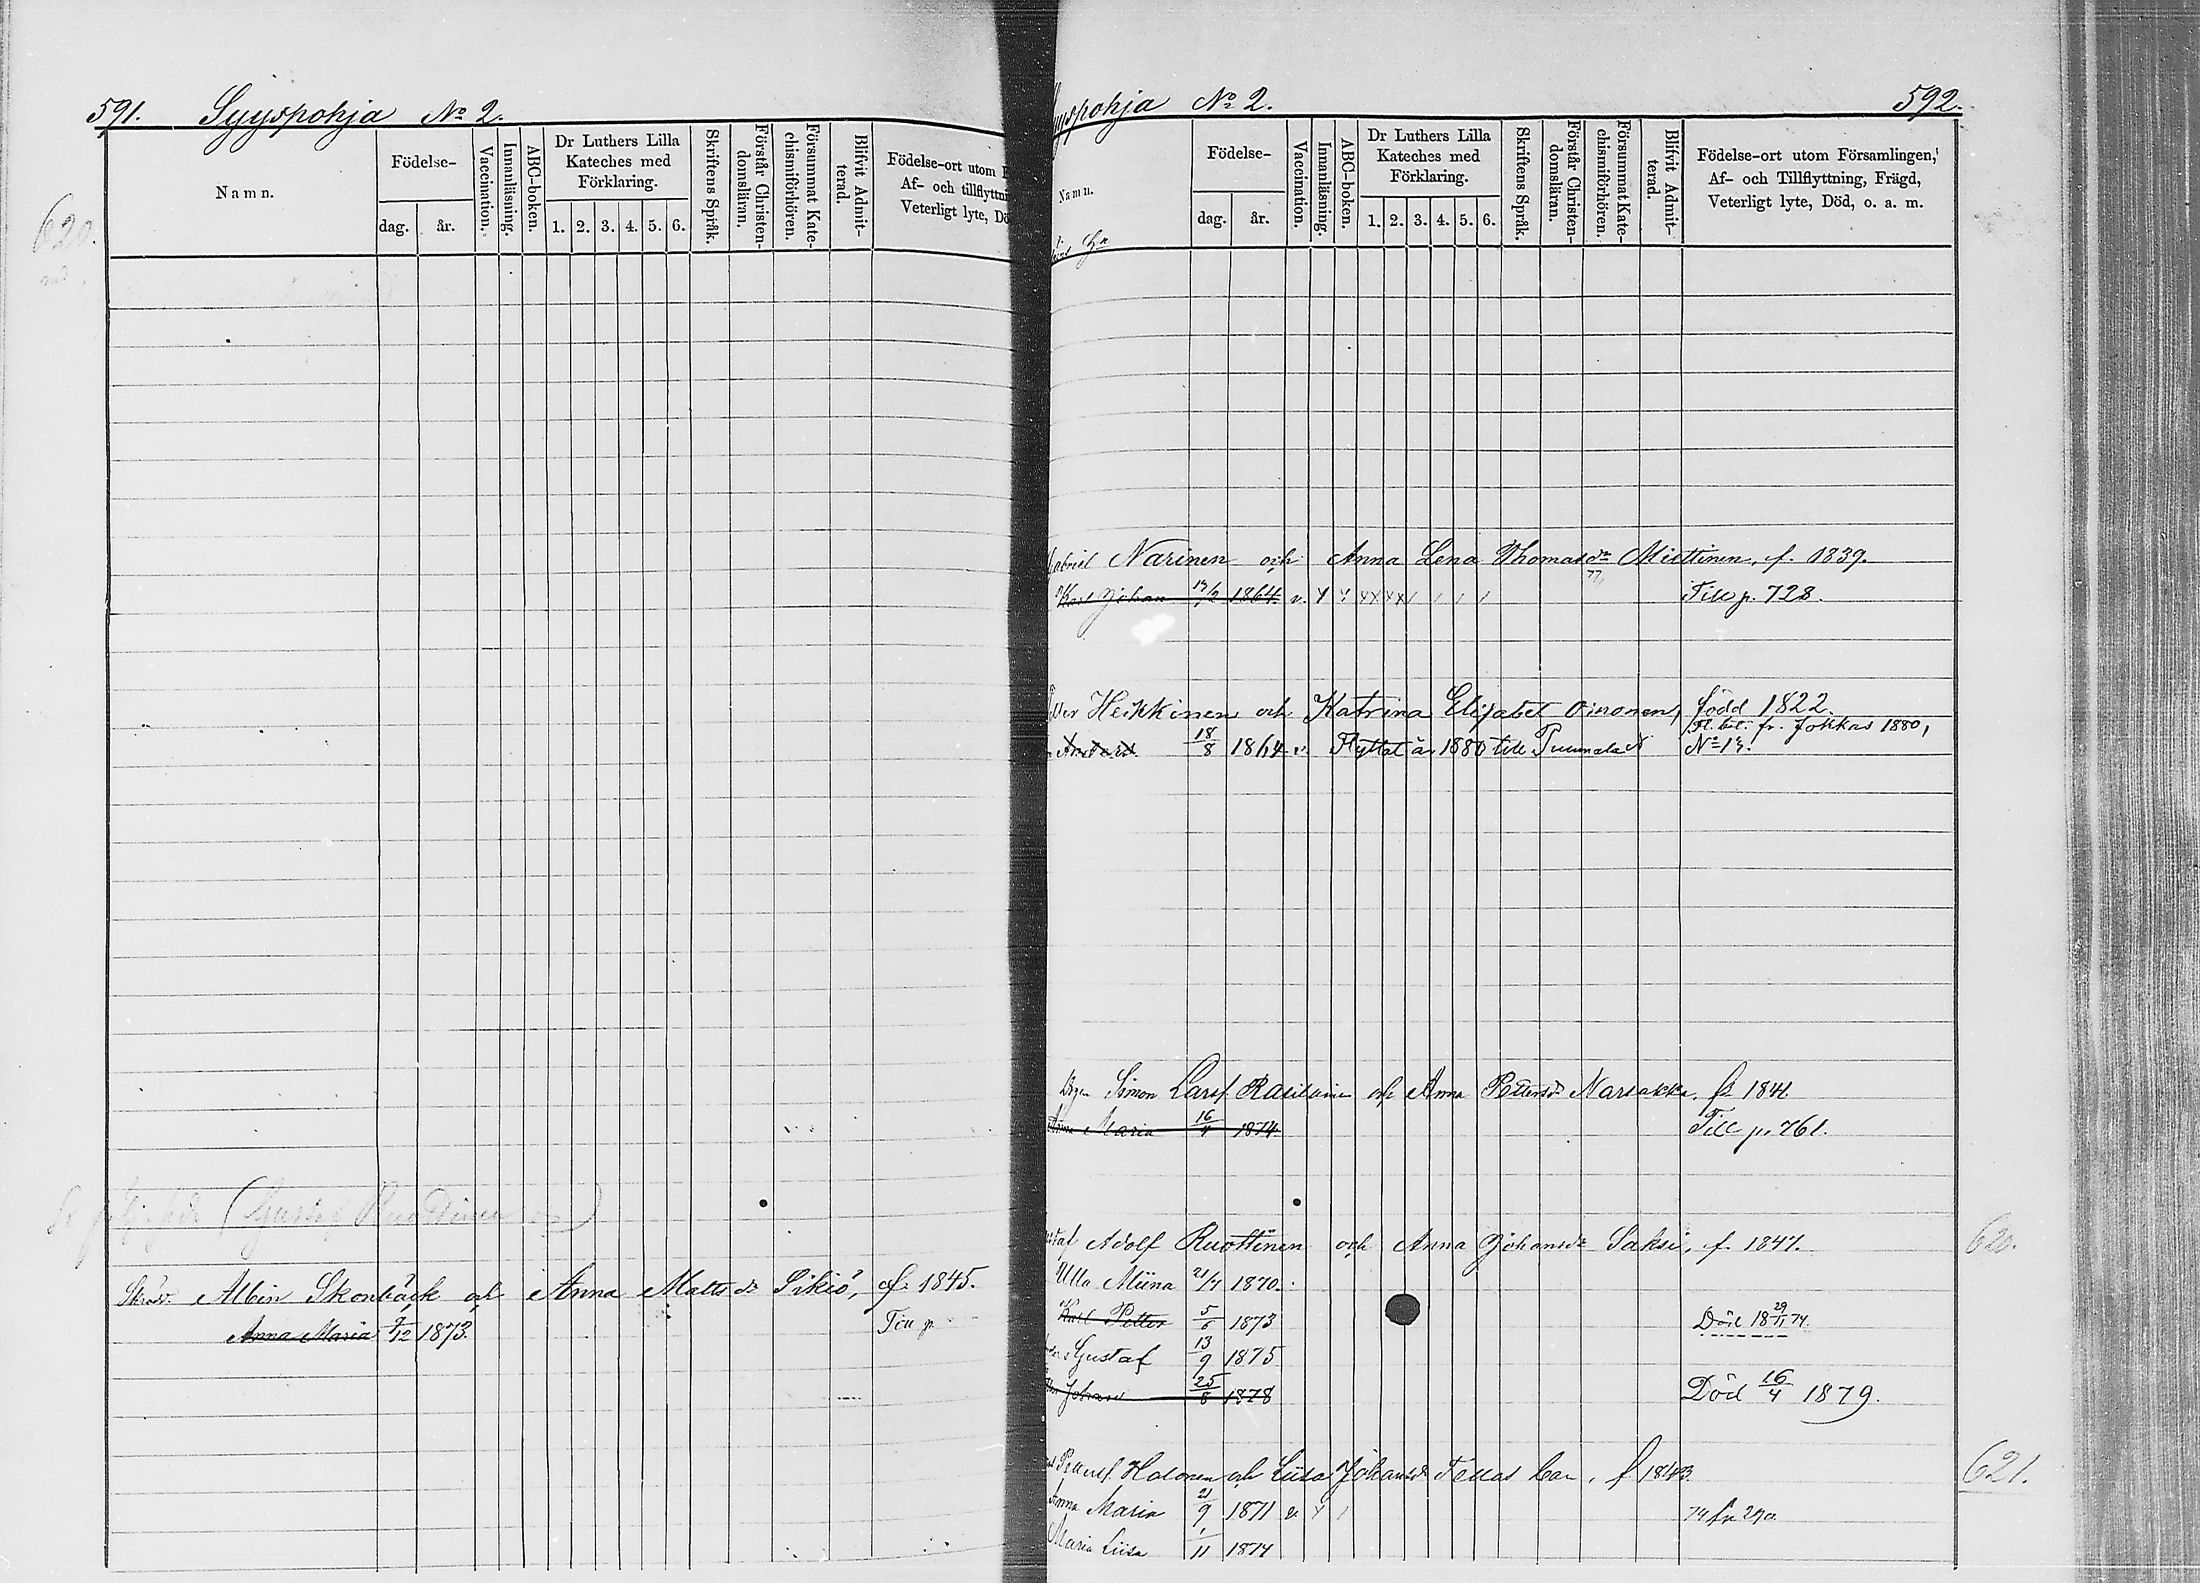 591. Syyspohja No 2.
620.
Namn.
Födelse-
dag.
år.
Vaccination.
Innanläsning.
ABC-boken.
Dr Luthers Lilla
Kateches med
Förklaring.
1. 2. 3. 4. 5. 6.
Skriftens Språk.
Förstår Christen-
domsläran.
Försummat Kate-
chismiförhören.
Blifvit Admit-
terad.
Födelse-ort utom
Af- och tillflyttni
Veterligt lyte, Dö
(Gustaf Ruottinen
Albin Skonbäck och Anna Matts dr Sikiö, f. 1845.
Anna Maria 7/12 1873. Till p.
yyspohja No 2. 592.
Namn.
Födelse-
dag.
år.
Vaccination.
Innanläsning.
ABC-boken.
Dr Luthers Lilla
Kateches med
Förklaring.
1. 2. 3. 4. 5. 6.
Skriftens Språk.
Förstår Christen-
domsläran.
Försummat Kate-
chismiförhören.
Blifvit Admit-
terad.
Födelse-ort utom Församlingen,
Af- och Tillflyttning, Frägd,
Veterligt lyte, Död, o. a. m.
abriel Narinen och Anna Lena Thomasdr Miettinen, f. 1839.
Karl Johan 1864. v. Till p. 728.
Heikkinen och Katrina Elisabet Oinonen, född 1822.
fr. Jokkas 1880,
18/8 1864 v. Flyttat år 1880 till Puumala No 13.
Simon Larsf. Rasilainen och Anna Pettersdr Narsakka, f. 1841.
Anna Maria 16/4 1874. Till p. 761.
taf Adolf Ruottinen och Anna Johansdr Saksi, f. 1847. 620.
Ulla Miina 21/4 1870.
Karl Petter 5/6 1873 Död 18 29/11 74.
Gustaf 13/9 1875
Johan 25/8 1878 Död 16/4 1879.
Pettersf. Halonen och Liisa Johansdr f 1843. 621.
Anna Maria 21/9 1871 v. 74 fr 290.
Maria Liisa 1/11 1874